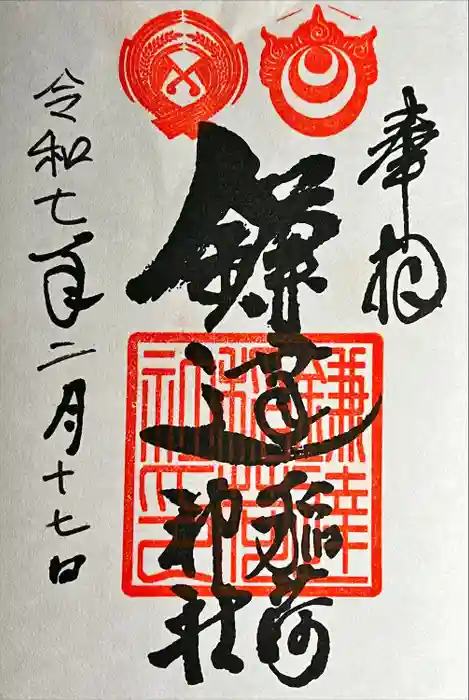 奉拝
鎌達稲荷神社
鎌達稲荷神社印
令和七年二月十七日